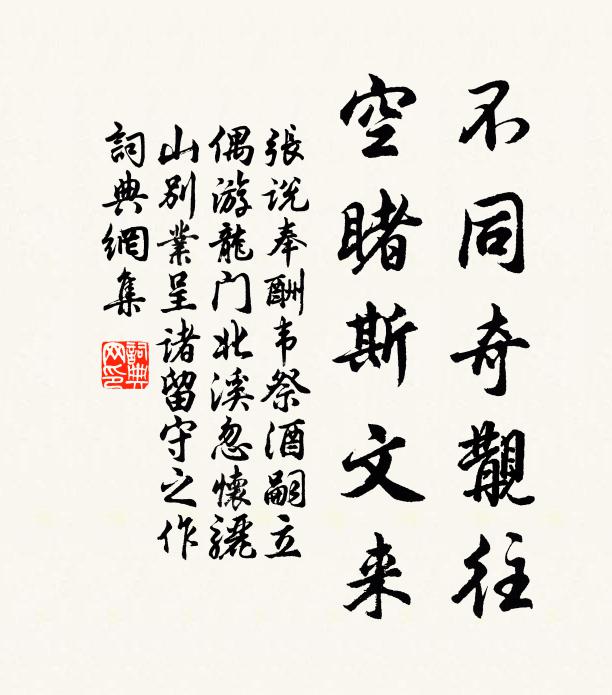 不同奇觏往
空睹斯文来
張说奉酬韦祭酒嗣立
偶游龍门北溪忽懷驪
山别業呈诸留守之作
詞典網集
詞典网印